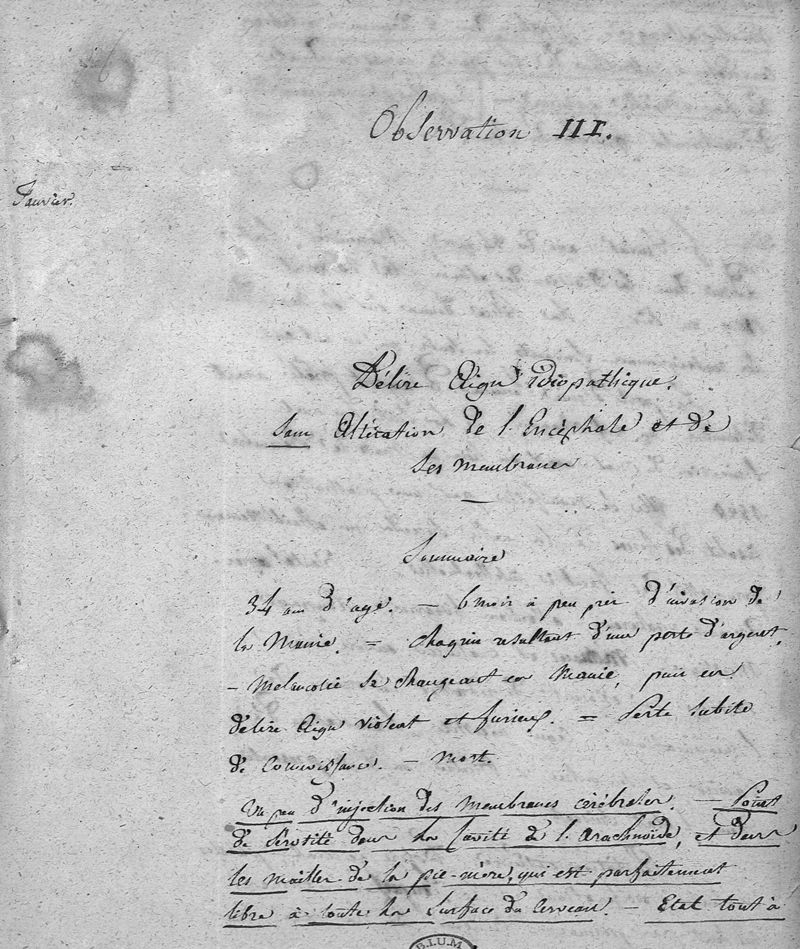 Observation III.
Janvier.
Délire Aigu idiopathique.
Sans Altération de l'Encéphale et de
Ses membranes
Sommaire
34 ans d'age. — 6 mois à peu près d'invasion de
la Manie. = chagrin resultant d'une perte d'argent,
— Melancolie se changeant en Manie, puis en
délire Aigu violent et furieux. = Perte Subite
de Connoissance. — Mort.
Un peu d'injection des membranes cérébrales. — Point
de Sérosité dans la Cavité de l'Arachnoïde, et dans
les mailles de la pie-mère, qui est parfaitement
libre à toute la Surface du Cerveau. — Etat tout à
B.I.U.M.